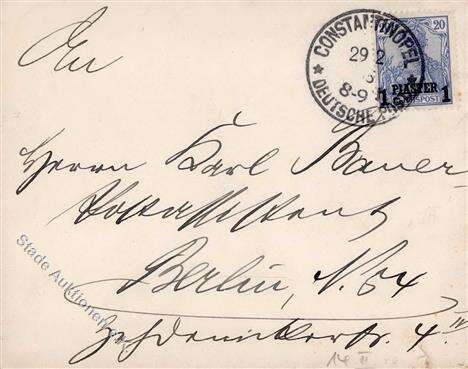 CONSTANTINOPEL
29 2
8-9
DEUTSCHE POST
20
1 PIASTER 1
REICHSPOST
An
Herrn Karl Bauer
Postassistent
Berlin, N. 64
Zehdenickerstr. 4 II
Stade Auktionen